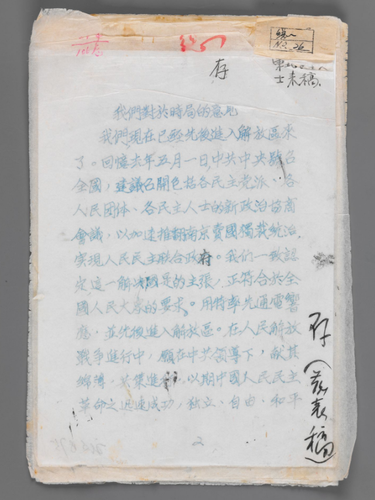 存
士来稿
我們對於時局的意見
我們現在已經先後進入解放區來
了。回憶去年五月一日中共中央號召
全國,建議召開包括各民主党派、各
人民团体、各民主人士的新政治協商
會議,以加速推翻南京賣國獨裁統治,
实現人民民主联合政府。我們一致認
定這一解決國是的主張,正符合於全
國人民大衆的要求。用特率先通電響
應,並先後進入解放區。在人民解放
戰爭進行中,願在中共領導下,獻其
綿薄,共策進行,以期中國人民民主
革命之迅速成功,独立、自由、和平
2
存(發表稿)